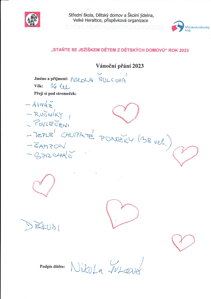 Střední škola, Dětský domov a Školní jídelna,
Velké Heraltice, příspěvková organizace
„STAŇTE SE JEŽÍŠKEM DĚTEM Z DĚTSKÝCH DOMOVŮ“ ROK 2023
Vánoční přání 2023
Jméno a příjmení: NIKOLA ŠULCOVÁ
Věk: 16 let
Přeji si pod stromeček:
- RUČNÍKY
- POVLEČENÍ
- TEPLÉ CHLUPATÉ PONOŽKY (38 vel.)
- ŠAMPON
DĚKUJI
Podpis dítěte: Nikola Šulcová